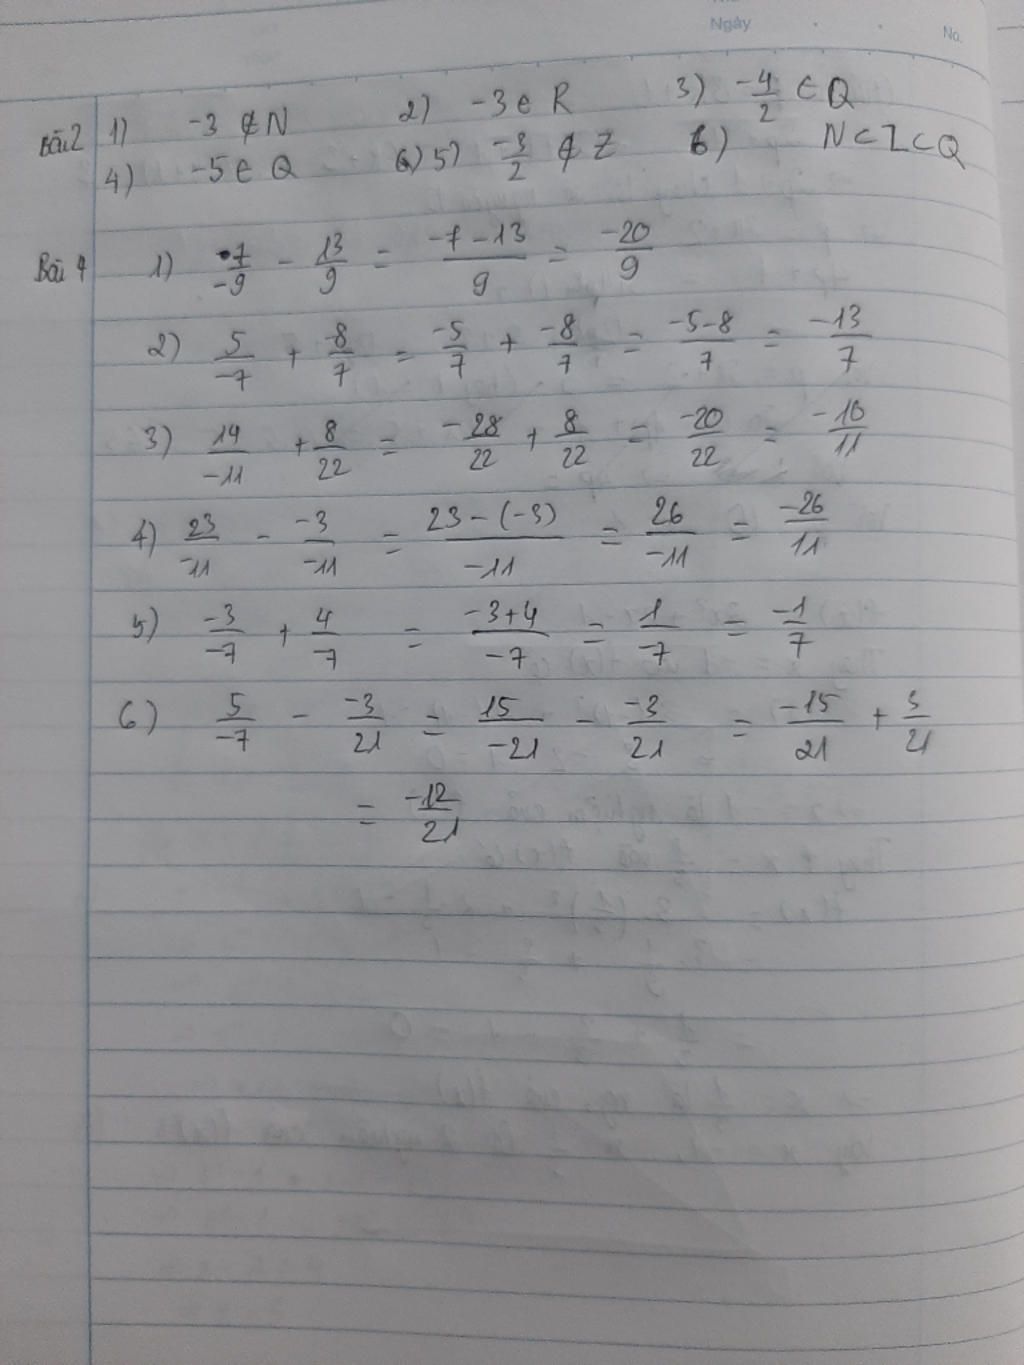 Ngày
No.
Bài 2 1) -3 ∉ N 2) -3 ∈ R 3) -4/2 ∈ Q
4) -5 ∈ Q 5) -3/2 ∉ Z 6) N ⊂ Z ⊂ Q
Bài 4 1) 7/-9 - 13/9 = -7-13/9 = -20/9
2) 5/-7 + -8/7 = -5/7 + -8/7 = -5-8/7 = -13/7
3) 14/-11 + 8/22 = -28/22 + 8/22 = -20/22 = -10/11
4) 23/-11 - -3/-11 = 23-(-3)/-11 = 26/-11 = -26/11
5) -3/-7 + 4/-7 = -3+4/-7 = 1/-7 = -1/7
6) 5/-7 - -3/21 = 15/-21 - -3/21 = -15/21 + 3/21
= -12/21